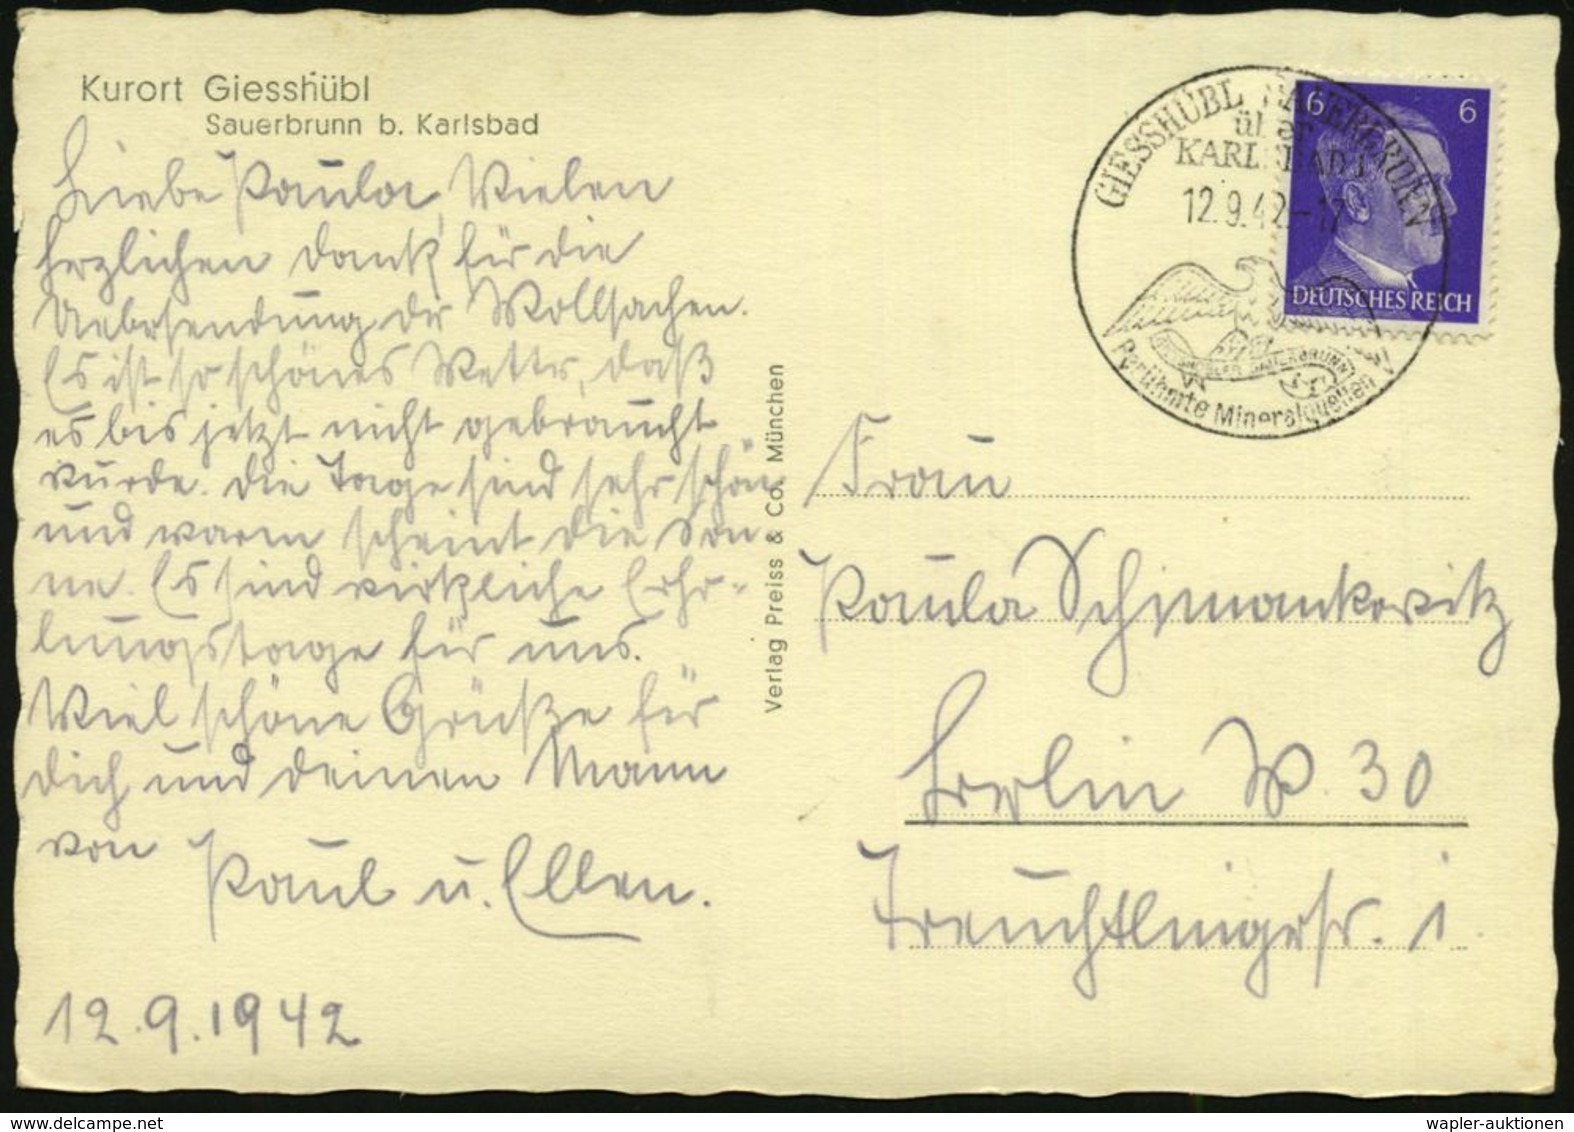 Kurort Giesshübl
Sauerbrunn b. Karlsbad
Liebe Paula, Vielen
herzlichen Dank für die
Uebersendung der Wollsachen.
Es ist so schönes Wetter, daß
es bis jetzt nicht gebraucht
wurde. Die Tage sind sehr schön
und warm scheint die Son
ne. Es sind wirkliche Erho-
lungstage für uns.
Viel schöne Grüße für
Dich und deinen Mann
von Paul u. Ellen.
12.9.1942
Verlag Preiss & Co. München
GIESSHÜBL SAUERBRUNN
über
KARLSBAD 1
12.9.42-17
GIESSHÜBLER SAUERBRUNN
Berühmte Mineralquellen
6 6
DEUTSCHES REICH
Frau
Paula Schimankowitz
Berlin W. 30
Treuchtlingerstr. 1
wapler-auktionen